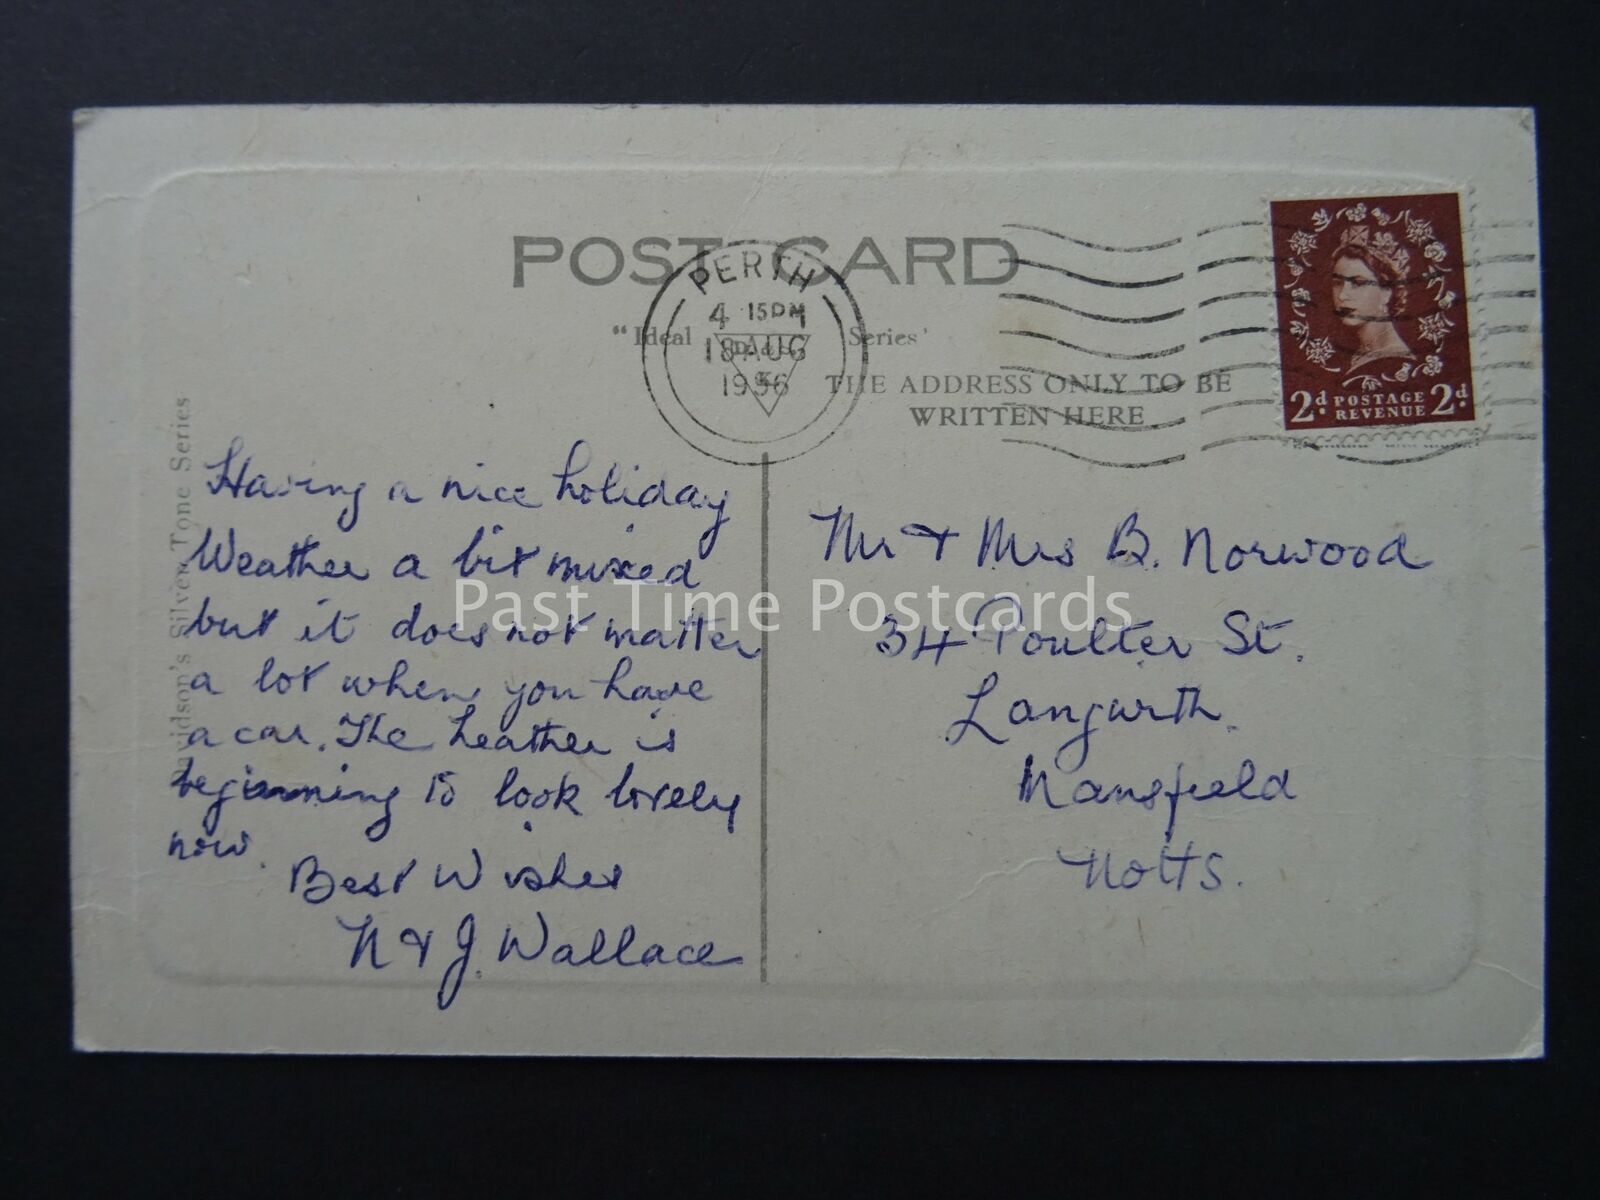 POST CARD
PERTH
4 15PM
18 AUG
1956
"Ideal Series"
THE ADDRESS ONLY TO BE
WRITTEN HERE
2d POSTAGE 2d
REVENUE
Davidson's Silver Tone Series
Having a nice holiday
Weather a bit mixed
but it does not matter
a lot when you have
a car. The heather is
beginning to look lovely
now.
Best Wishes
N & J. Wallace
Mr & Mrs B. Norwood
34 Poulter St.
Langwith.
Mansfield
Notts.
Past Time Postcards